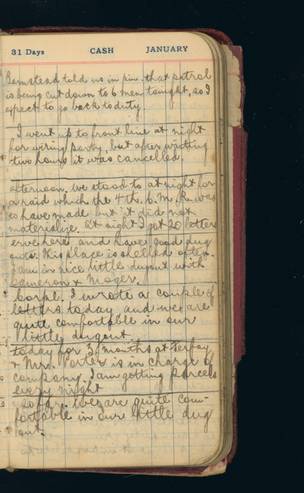 31 Days CASH JANUARY
told us in p.m. that patrol
is being cut down to 6 men tonight, so I
expect to go back to duty.
I went up to front line at night
for wiring party, but after waiting
two hours it was cancelled.
afternoon. We stood to at night for
a raid which the 4th. C.M.R. was
to have made but it did not
materialize. At night I got 20 letters
here and have good dug
outs. This place is shelled often.
I am in nice little dugout with
Cameron &
I wrote a couple of
letters today and we are
quite comfortable in our
little dugout
today for 3 months at
& Mr. is in charge of
company. I am getting parcels
every night
We are quite com-
fortable in our little dug
out.